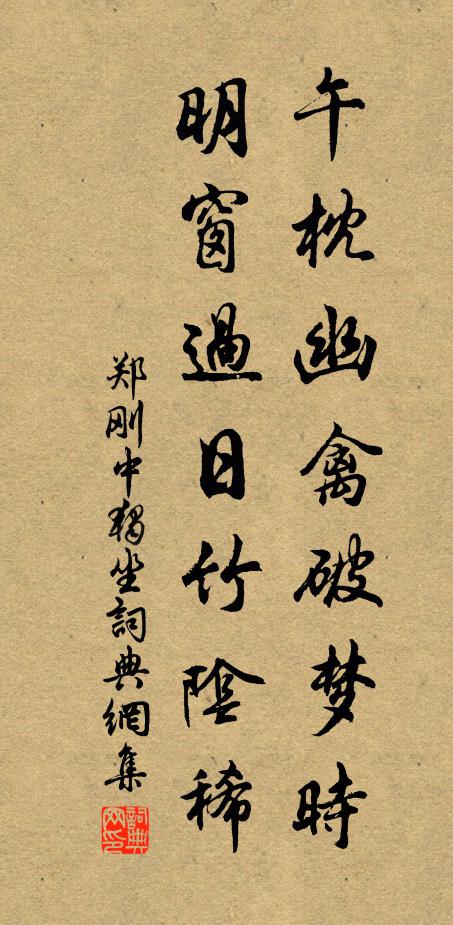 午枕幽禽破梦時
明窗過日竹陰稀
郑刚中獨坐詞典網集
詞典網印